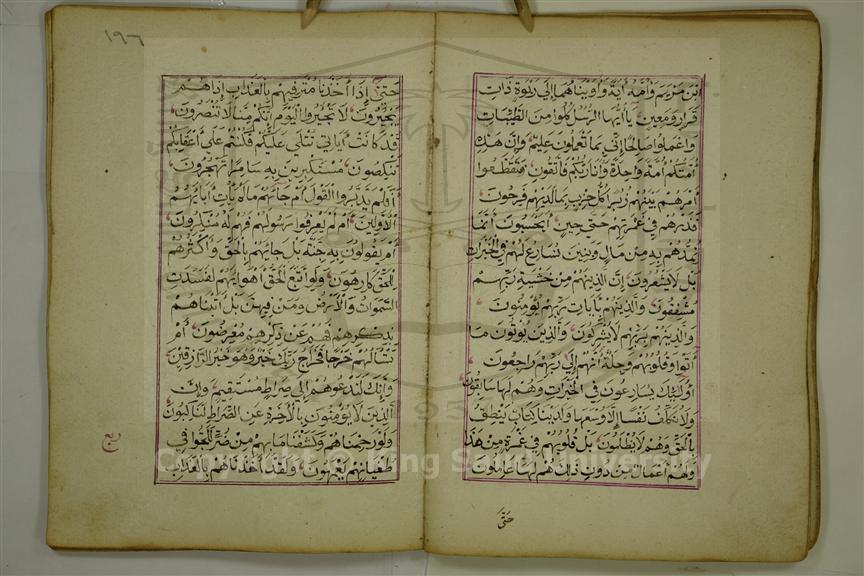 ابن مريم وأمه آية وآويناهما إلى ربوة ذات
قرار ومعين يا أيها الرسل كلوا من الطيبات
واعملوا صالحا إني بما تعملون عليم وإن هذه
أمتكم أمة واحدة وأنا ربكم فاتقون فتقطعوا
أمرهم بينهم زبرا كل حزب بما لديهم فرحون
فذرهم في غمرتهم حتى حين أيحسبون أنما
نمدهم به من مال وبنين نسارع لهم في الخيرات
بل لا يشعرون إن الذين هم من خشية ربهم
مشفقون والذين هم بآيات ربهم يؤمنون
والذين هم بربهم لا يشركون والذين يؤتون ما
آتوا وقلوبهم وجلة أنهم إلى ربهم راجعون
أولئك يسارعون في الخيرات وهم لها سابقون
ولا نكلف نفسا إلا وسعها ولدينا كتاب ينطق
بالحق وهم لا يظلمون بل قلوبهم في غمرة من هذا
ولهم أعمال من دون ذلك هم لها عاملون
حتى
١٩٦
حتى إذا أخذنا مترفيهم بالعذاب إذا هم
يجأرون لا تجأروا اليوم إنكم منا لا تنصرون
قد كانت آياتي تتلى عليكم فكنتم على أعقابكم
تنكصون مستكبرين به سامرا تهجرون
أفلم يدبروا القول أم جاءهم ما لم يأت آباءهم
الأولين أم لم يعرفوا رسولهم فهم له منكرون
أم يقولون به جنة بل جاءهم بالحق وأكثرهم
للحق كارهون ولو اتبع الحق أهواءهم لفسدت
السموات والأرض ومن فيهن بل أتيناهم
بذكرهم فهم عن ذكرهم معرضون أم
تسألهم خرجا فخراج ربك خير وهو خير الرازقين
وإنك لتدعوهم إلى صراط مستقيم وإن
الذين لا يؤمنون بالآخرة عن الصراط لناكبون
ولو رحمناهم وكشفنا ما بهم من ضر للجوا في
طغيانهم يعمهون ولقد أخذناهم بالعذاب
ربع
Copyright © King Saud University